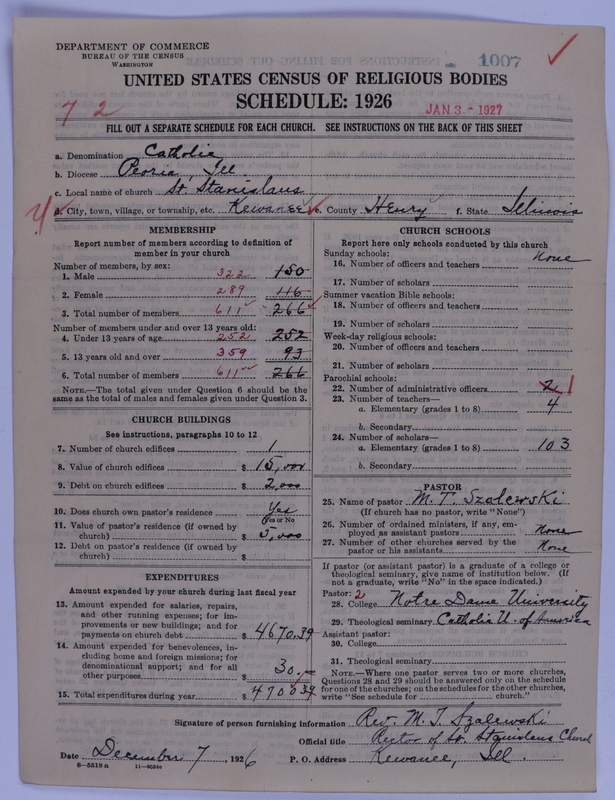 DEPARTMENT OF COMMERCE
BUREAU OF THE CENSUS
WASHINGTON
1007
UNITED STATES CENSUS OF RELIGIOUS BODIES
SCHEDULE: 1926
7 2
JAN 3 - 1927
FILL OUT A SEPARATE SCHEDULE FOR EACH CHURCH. SEE INSTRUCTIONS ON THE BACK OF THIS SHEET
a. Denomination Catholic
b. Diocese Peoria, Ill
c. Local name of church St. Stanislaus
d. City, town, village, or township, etc. Kewanee e. County Henry f. State Illinois
MEMBERSHIP
Report number of members according to definition of
member in your church
Number of members, by sex:
1. Male 322 150
2. Female 289 116
3. Total number of members 611 266
Number of members under and over 13 years old:
4. Under 13 years of age 252 252
5. 13 years old and over 359 93
6. Total number of members 611 266
NOTE.—The total given under Question 6 should be the
same as the total of males and females given under Question 3.
CHURCH BUILDINGS
See instructions, paragraphs 10 to 12
7. Number of church edifices 1
8. Value of church edifices $ 15,000
9. Debt on church edifices $ 2,000
10. Does church own pastor's residence Yes
Yes or No
11. Value of pastor's residence (if owned by
church) $ 5,000
12. Debt on pastor's residence (if owned by
church) $
EXPENDITURES
Amount expended by your church during last fiscal year
13. Amount expended for salaries, repairs,
and other running expenses; for im-
provements or new buildings; and for
payments on church debt $ 4670.39
14. Amount expended for benevolences, in-
cluding home and foreign missions; for
denominational support; and for all
other purposes $ 30.—
15. Total expenditures during year $ 4700.39
CHURCH SCHOOLS
Report here only schools conducted by this church
Sunday schools:
16. Number of officers and teachers None
17. Number of scholars
Summer vacation Bible schools:
18. Number of officers and teachers
19. Number of scholars
Week-day religious schools:
20. Number of officers and teachers
21. Number of scholars
Parochial schools:
22. Number of administrative officers 2 1
23. Number of teachers—
a. Elementary (grades 1 to 8) 4
b. Secondary
24. Number of scholars—
a. Elementary (grades 1 to 8) 103
b. Secondary
PASTOR
25. Name of pastor M. T. Szalewski
(If church has no pastor, write "None")
26. Number of ordained ministers, if any, em-
ployed as assistant pastors None
27. Number of other churches served by the
pastor or his assistants None
If pastor (or assistant pastor) is a graduate of a college or
theological seminary, give name of institution below. (If
not a graduate, write "No" in the space indicated.)
Pastor: 2
28. College Notre Dame University
29. Theological seminary Catholic U. of America
Assistant pastor:
30. College
31. Theological seminary
NOTE.—Where one pastor serves two or more churches,
Questions 28 and 29 should be answered only on the schedule
for one of the churches; on the schedules for the other churches,
write "See schedule for church."
Signature of person furnishing information Rev. M. T. Szalewski
Official title Rector of St. Stanislaus Church
Date December 7, 1926 P. O. Address Kewanee, Ill.
8—5518 a